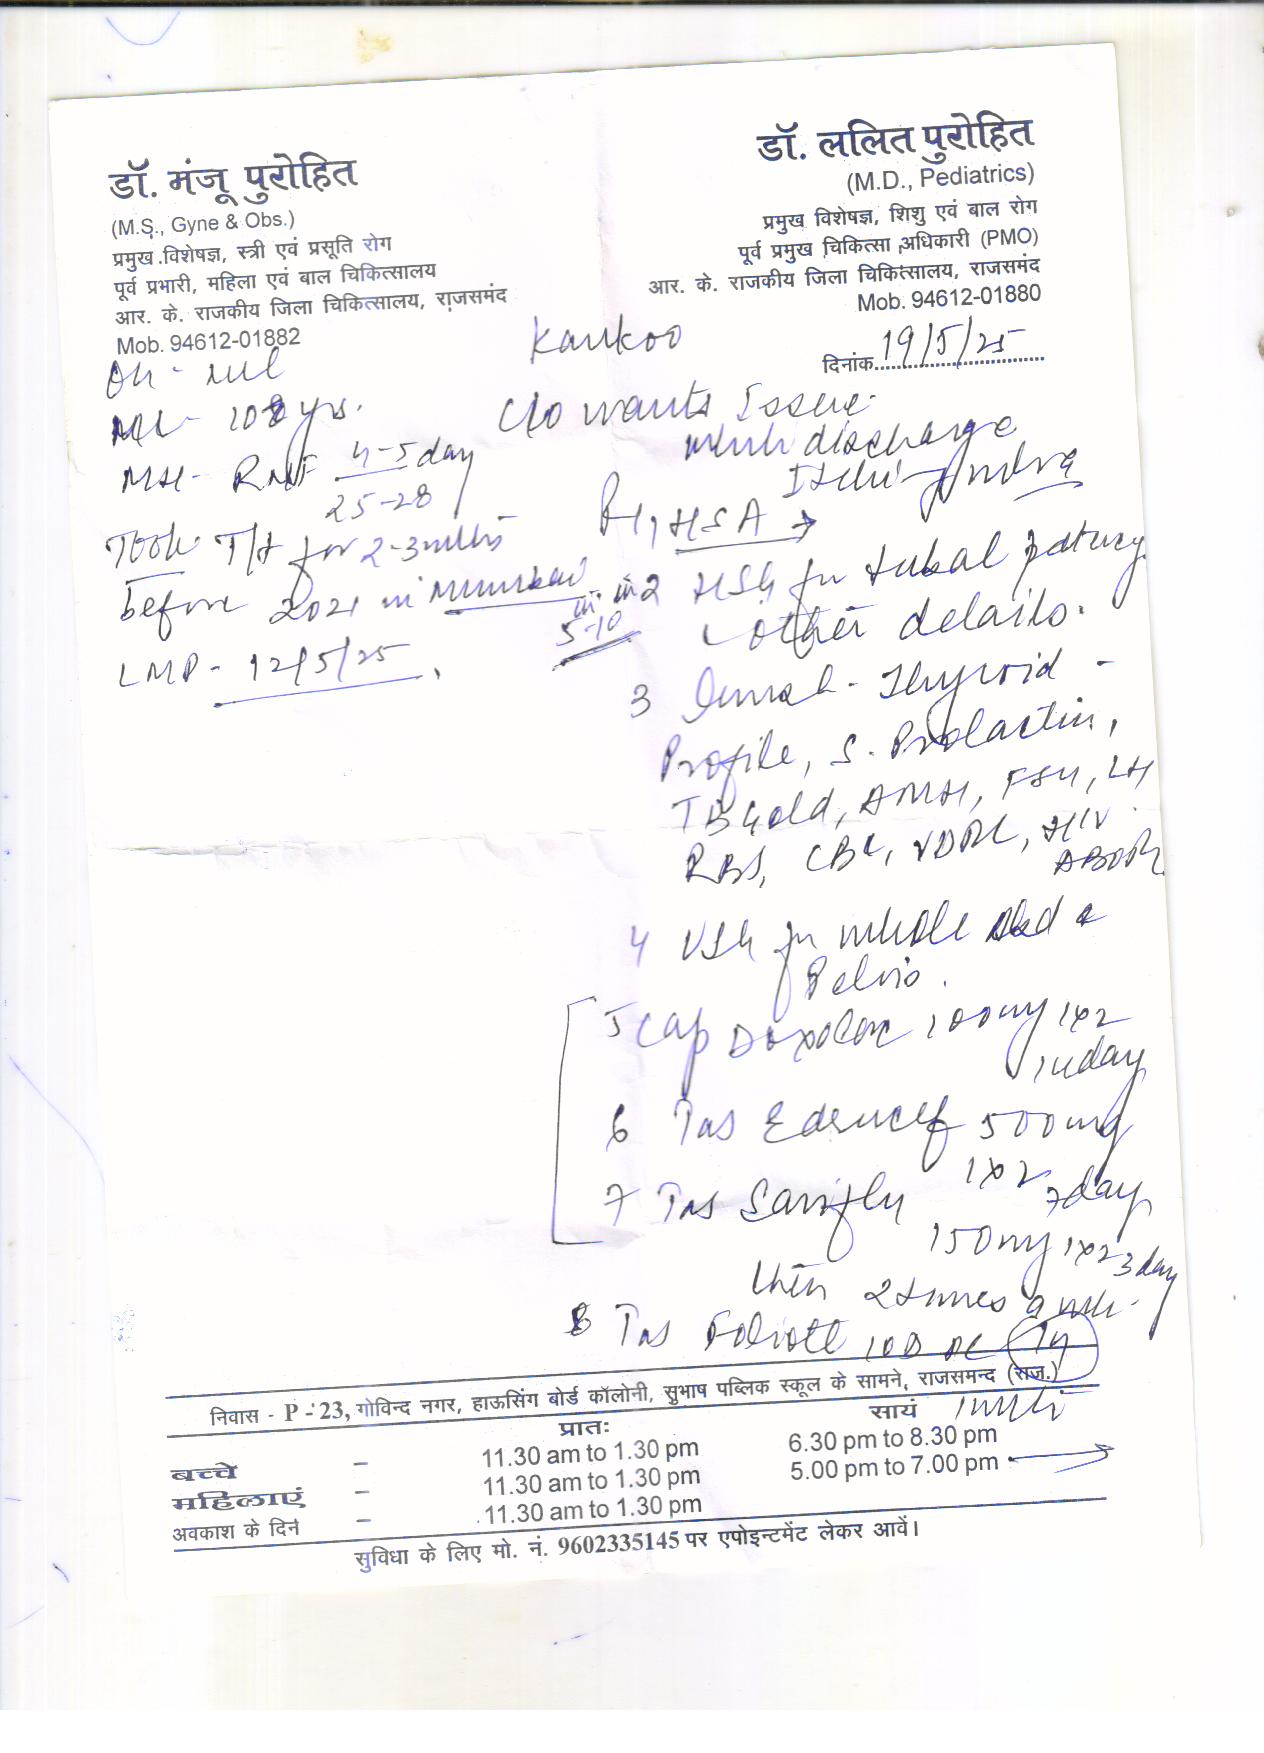 डॉ. मंजू पुरोहित
(M.S., Gyne & Obs.)
प्रमुख विशेषज्ञ, स्त्री एवं प्रसूति रोग
पूर्व प्रभारी, महिला एवं बाल चिकित्सालय
आर. के. राजकीय जिला चिकित्सालय, राजसमंद
Mob. 94612-01882
डॉ. ललित पुरोहित
(M.D., Pediatrics)
प्रमुख विशेषज्ञ, शिशु एवं बाल रोग
पूर्व प्रमुख चिकित्सा अधिकारी (PMO)
आर. के. राजकीय जिला चिकित्सालय, राजसमंद
Mob. 94612-01880
दिनांक 19/5/25
Kankoo
OH - nil
yrs.
MH - 4-5 day
25-28
Took T/t for 2-3 mths
before 2021 in Mumbai
LMP - 12/5/25
c/o wants Issue
discharge
HSA →
2 HSG for tubal patency
5-10
other details.
3 Thyroid -
Profile, S. Prolactin,
TB Gold, AMH, FSH, LH
RBS, CBC, VDRL, HIV
ABORh
4 USG for whole Abd &
Pelvis.
5 Cap 100mg 1x2
14day
6 Tab 500mg
1x2 7day
7 Tab
150mg 1x2 3day
then 2 times a wk.
8 Tab 10D
निवास - P -'23, गोविन्द नगर, हाऊसिंग बोर्ड कॉलोनी, सुभाष पब्लिक स्कूल के सामने, राजसमन्द (राज.)
प्रातः सायं
बच्चे - 11.30 am to 1.30 pm 6.30 pm to 8.30 pm
महिलाएं - 11.30 am to 1.30 pm 5.00 pm to 7.00 pm
अवकाश के दिन - 11.30 am to 1.30 pm
सुविधा के लिए मो. नं. 9602335145 पर एपोइन्टमेंट लेकर आवें।